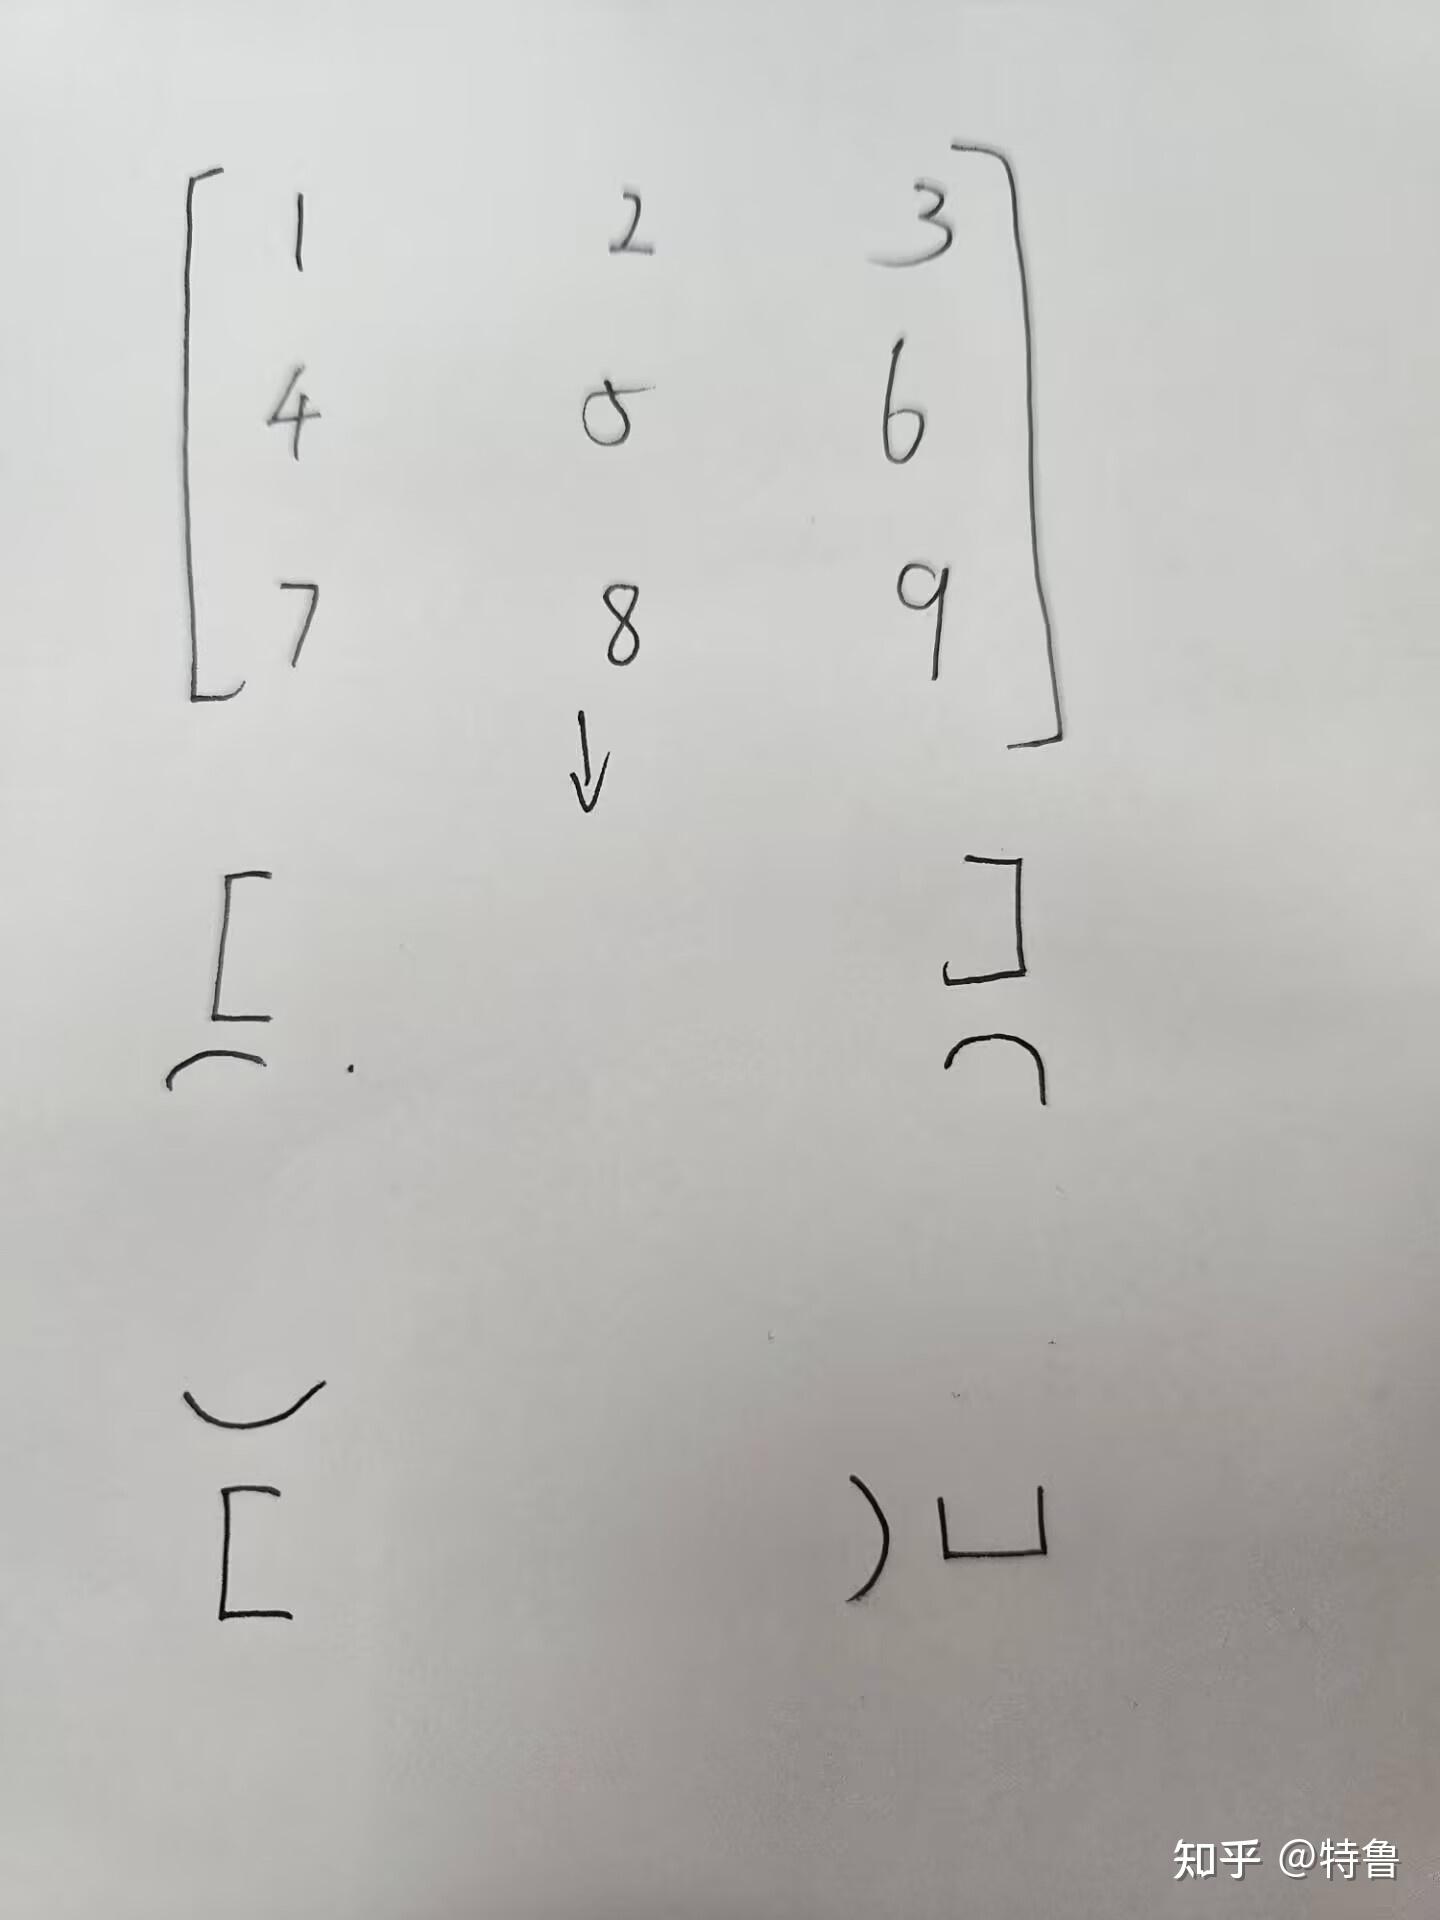 [ 1 2 3
4 5 6
7 8 9 ]
↓
[ ]
⌒ . ⌒
⌣
[ ) ⊔
知乎 @特鲁